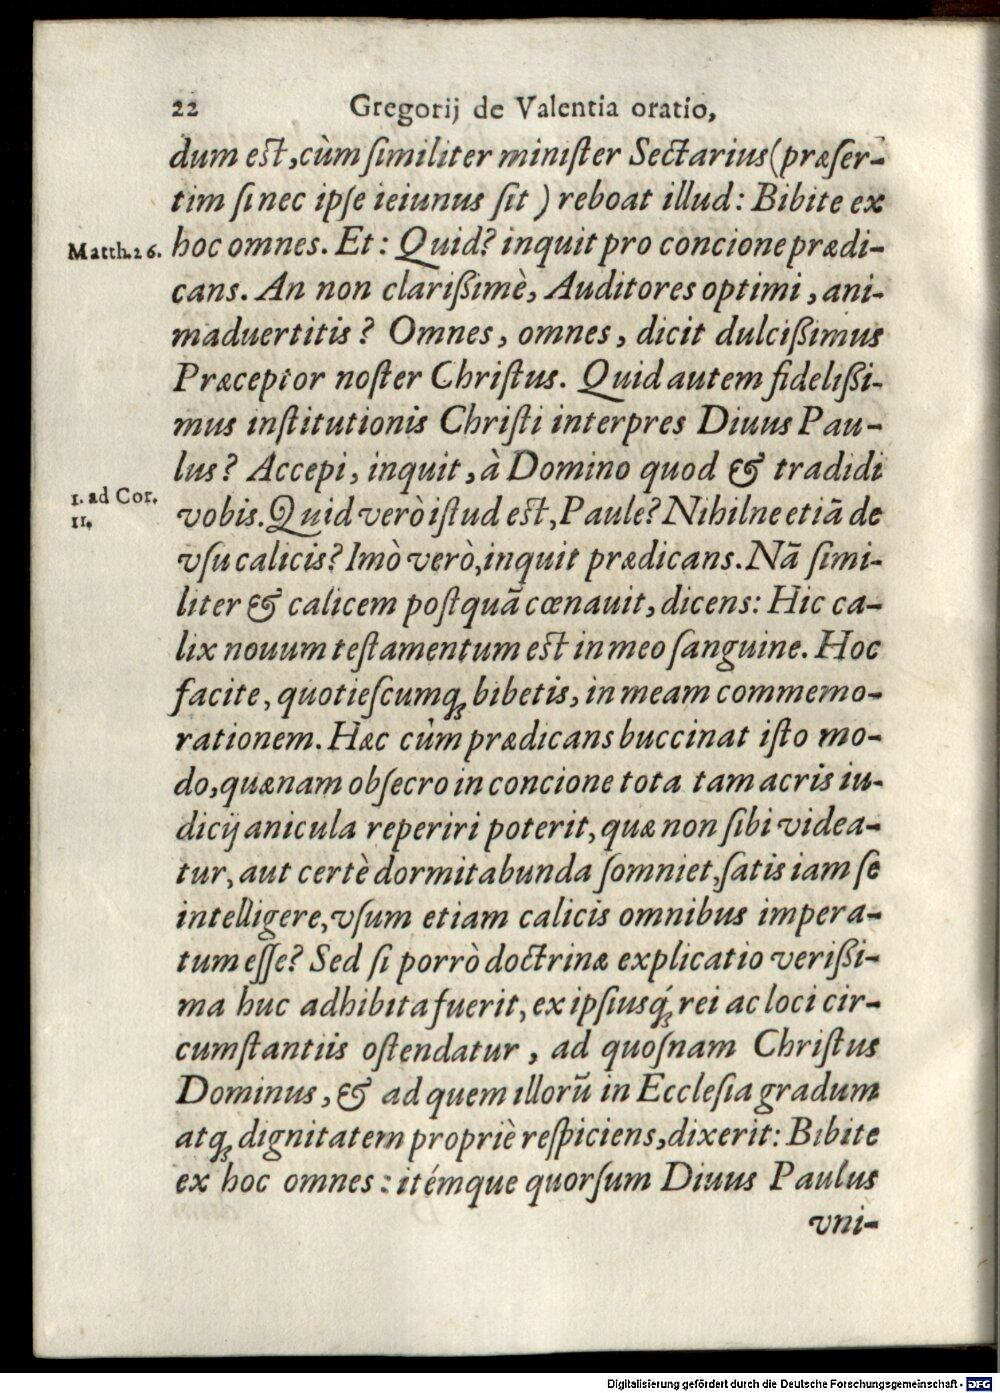 22 Gregorij de Valentia oratio,
dum est, cùm ſimiliter miniſter Sectarius (præſer-
tim ſi nec ipſe ieiunus ſit) reboat illud: Bibite ex
Matth.26. hoc omnes. Et: Quid? inquit pro concione prædi-
cans. An non clarißimè, Auditores optimi, ani-
maduertitis? Omnes, omnes, dicit dulcißimus
Præceptor noſter Chriſtus. Quid autem fidelißi-
mus inſtitutionis Chriſti interpres Diuus Pau-
lus? Accepi, inquit, à Domino quod & tradidi
1. ad Cor.
11.
vobis. Quid verò iſtud est, Paule? Nihilne etiā de
vſu calicis? Imò verò, inquit prædicans. Nā ſimi-
liter & calicem poſtquā cœnauit, dicens: Hic ca-
lix nouum teſtamentum est in meo ſanguine. Hoc
facite, quotieſcumq; bibetis, in meam commemo-
rationem. Hæc cùm prædicans buccinat iſto mo-
do, quænam obſecro in concione tota tam acris iu-
dicij anicula reperiri poterit, quæ non ſibi videa-
tur, aut certè dormitabunda ſomniet, ſatis iam ſe
intelligere, vſum etiam calicis omnibus impera-
tum eſſe? Sed ſi porrò doctrinæ explicatio verißi-
ma huc adhibita fuerit, ex ipſiusq́; rei ac loci cir-
cumſtantiis oſtendatur, ad quoſnam Chriſtus
Dominus, & ad quem illorū in Eccleſia gradum
atq; dignitatem propriè reſpiciens, dixerit: Bibite
ex hoc omnes: itémque quorſum Diuus Paulus
vni-
Digitalisierung gefördert durch die Deutsche Forschungsgemeinschaft - DFG